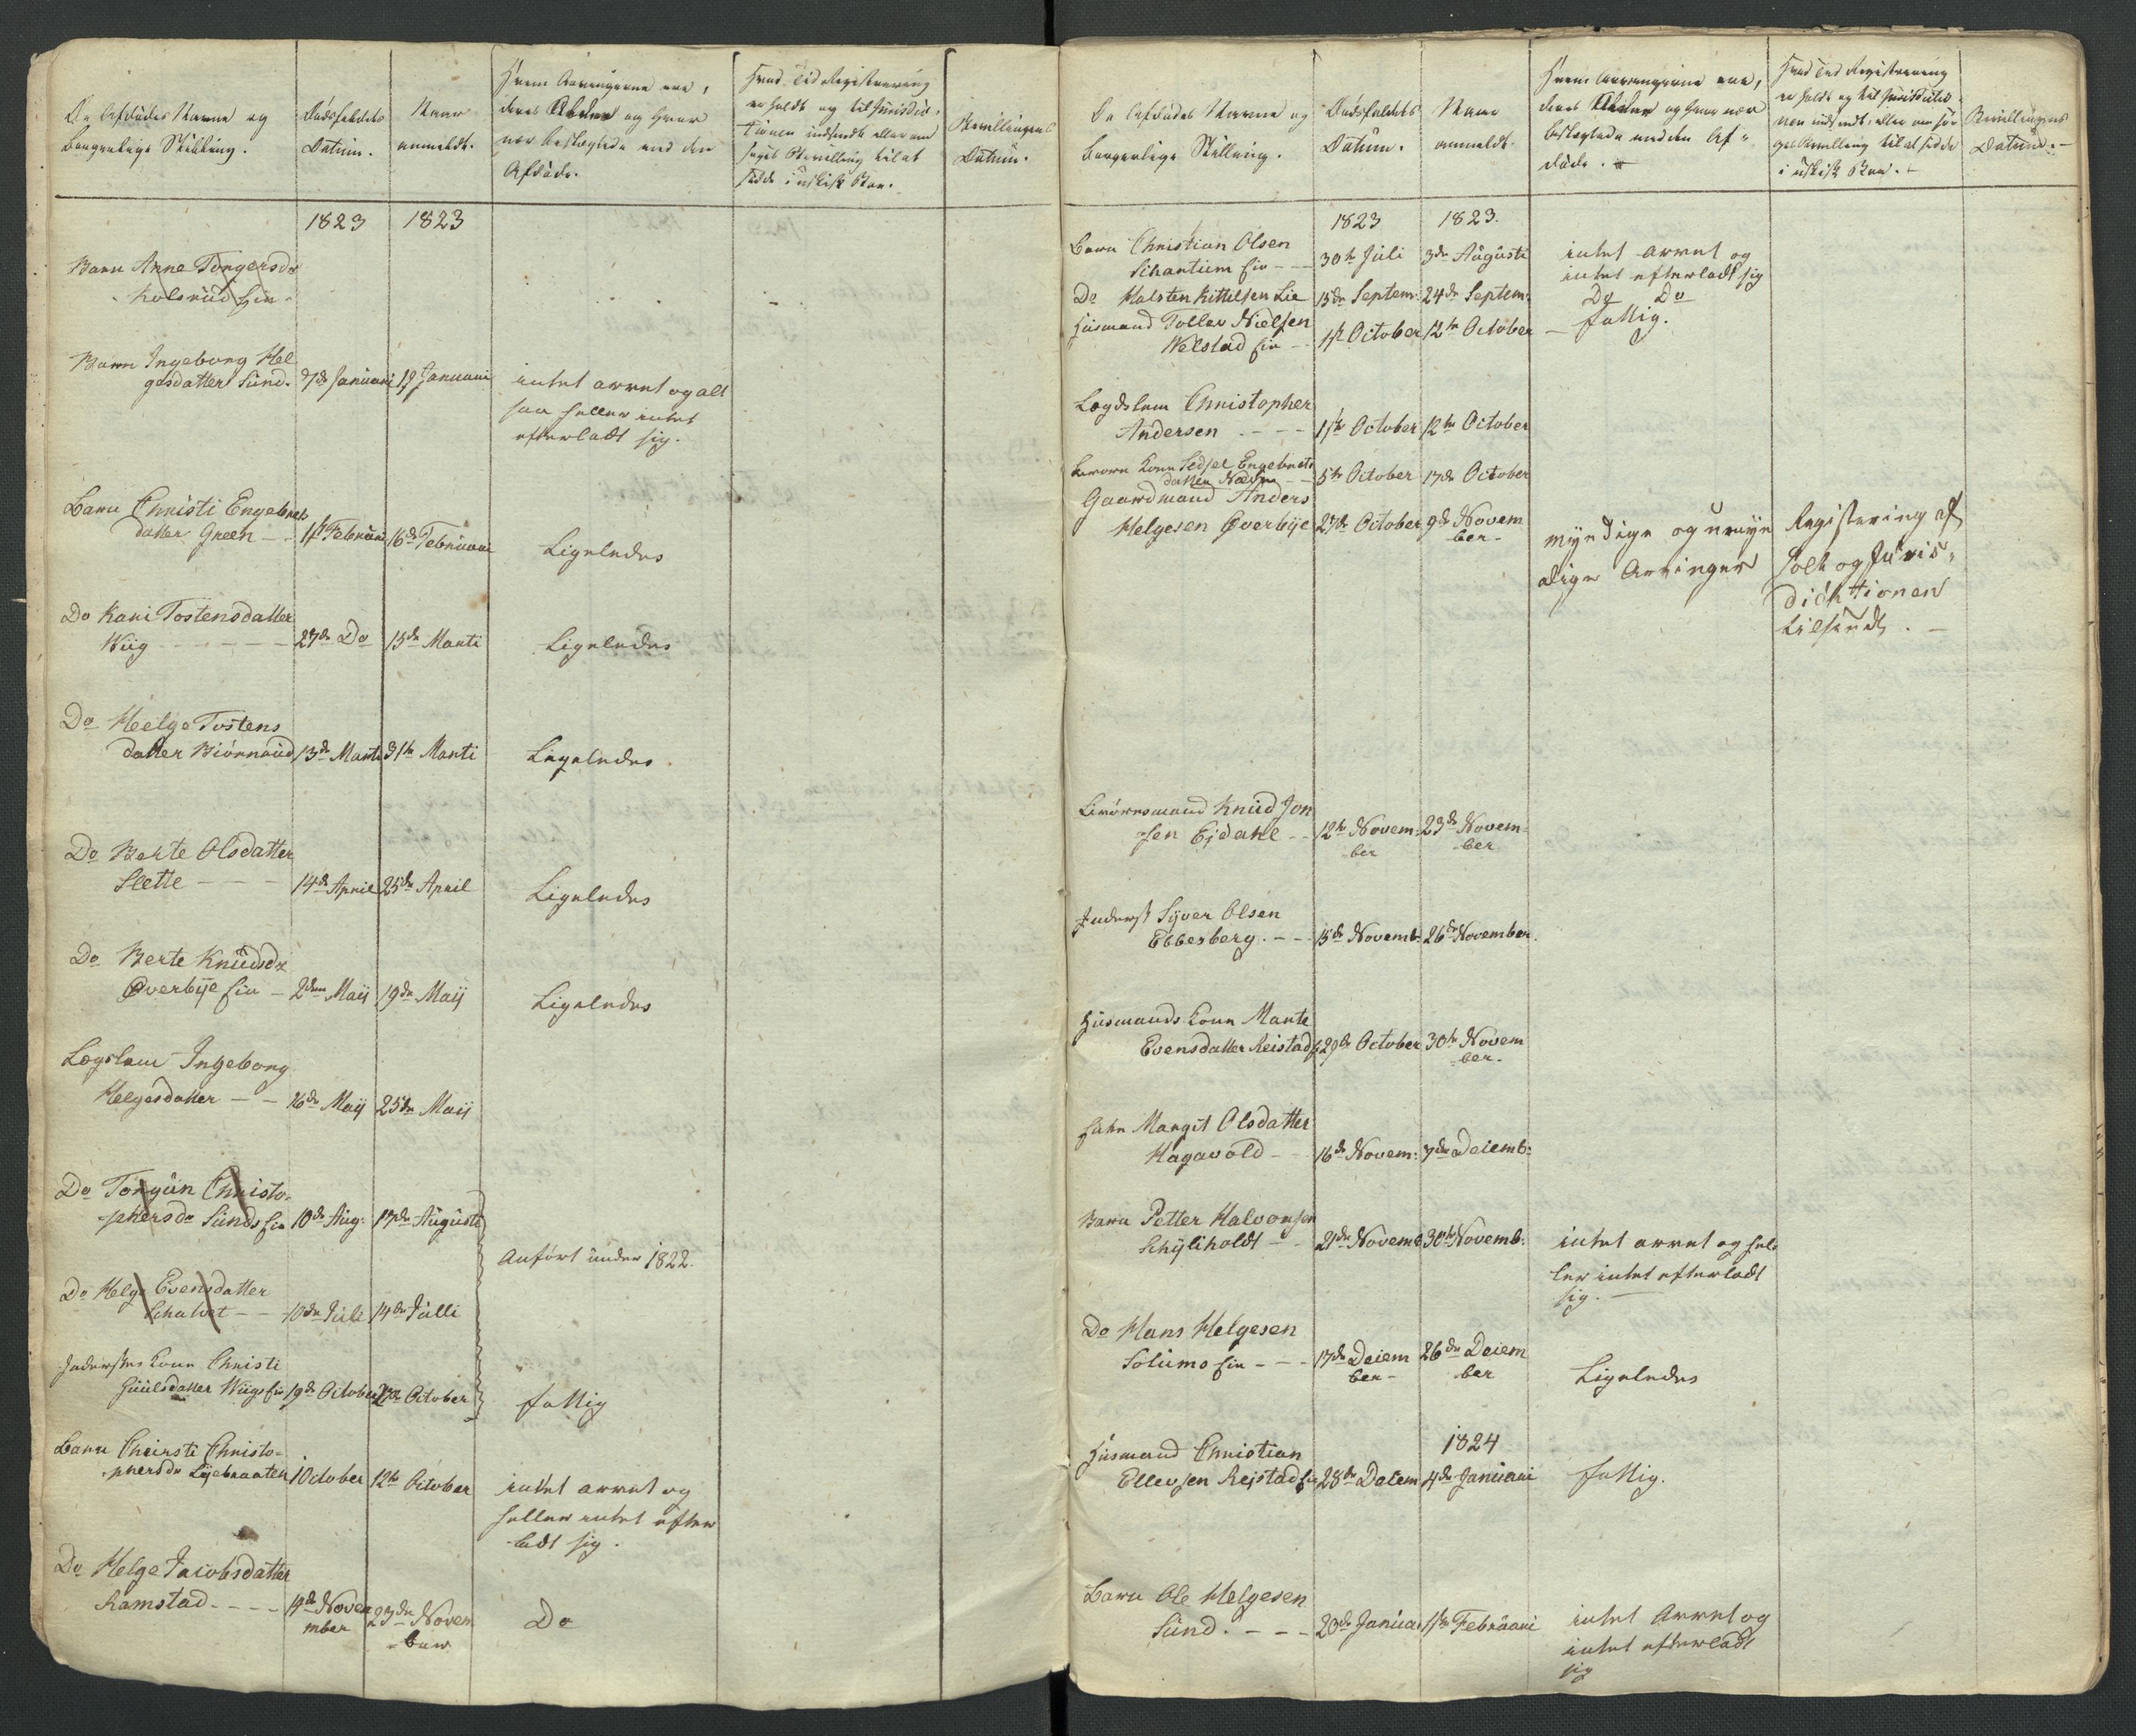 De Afdødes Navne og
borgerlige Stilling.
Dødsfaldets
Datum.
Naar
anmeldt.
Hvem Arvingerne ere,
deres Alder og hvor
nær beslægtede med den
Afdøde.
Hvad Tid Registrering
er holdt og til Jurisdic-
tionen indsendt eller om
søges Bevilling til at
sidde i uskift Boe.
Bevillingens
Datum.
1823 1823
Barn Anne Torgersdr
Kolsrud Eie
Barn Ingeborg Hel
gesdatter Sund. 7de Januari 19 Januari
intet arvet og alt
saa heller intet
efterladt sig.
Barn Christi Engebrets
datter Green - - 1ste Februari 16de Februari Ligeledes
Do Kari Tostensdatter
Wiig - - - 27de Do 15de Marti Ligeledes
Do Helge Tostens
datter Biørnerud 13de Marti 31te Marti Ligeledes
Do Berte Olsdatter
Slette - - - 14de April 25de April Ligeledes
Do Berte Knudsdr
Overbÿe Eie - 2den Maij 19de Maij Ligeledes
Lægslem Ingeborg
Helgesdatter - - 16de Maij 25de Maij
Do Torgun Christo-
phersdr Sunds Eie 10de Aug: 17de Augusti
Anført under 1822.
Do Helge Evensdatter
Schalset - - 10de Juli 14de Julli
Inderstes Kone Christi
Guulsdatter Wiigs Eie 19de October 27de October fattig
Barn Chirsti Christo-
phersdr Lÿebraaten 1 October 12te October
intet arvet og
heller intet efter
ladt sig.
Do Helge Jacobsdatter
Ramstad. - - - 14de Nove
mber 23de Novem
ber Do
De Afdødes Navne og
borgerlige Stilling.
Dødsfaldets
Datum.
Naar
anmeldt.
Hvem Arvingerne ere,
deres Alder og hvor nær
beslægtede med den Af-
døde.
Hvad Tid Registrering
er holdt og til Jurisdictio-
nen indsendt eller om sø-
ges Bevilling til at sidde
i uskift Boe.
Bevillingens
Datum.
1823 1823.
Barn Christian Olsen
Schartum Eie - - 30te Juli 3de Augusti
intet arvet og
intet efterladt sig
Do Halsten Kittilsen Lie 15de Septem: 24de Septem: Do Do
Huusmand Tollev Nielsen
Welstad Eie - - 1ste October 12te October - fattig.
Lægdslem Christopher
Andersen - - - 1ste October 12te October
Kone Sidsel Engebrets
datter - - 5te October 17de October
Gaardmand Anders
Helgesen Overbÿe 27de October 9de Novem
ber
myndige og umyn
dige Arvinger
Registering af
holt og Juris-
dichtionen
tilsendt. -
Knud Jon
sen Ejdahl - - 12te Novem-
ber 23de Novem-
ber
Inderst Syver Olsen
Ebbesberg. - - 15de Novemb: 26de November.
Huusmands Kone Marte
Evensdatter Reistad 29de October 30te Novem
ber
Margit Olsdatter
Hagavold - - 16de Novem: 7de Decemb:
Barn Petter Halvorsen
Schÿliholdt - - 21de Novemb 30te Novemb:
intet arvet og hel
ler intet efterladt
sig.
Do Hans Helgesen
Solumo Eie - - - 17de Decem
ber 26de Decem
ber Ligeledes
1824
Huusmand Christian
Ellevsen Rejstad Eie 28de Decem 4de Januari fattig.
Barn Ole Helgesen
Sund. - - - 20de Januar 1ste Februari
intet Arvet og
intet efterladt
sig